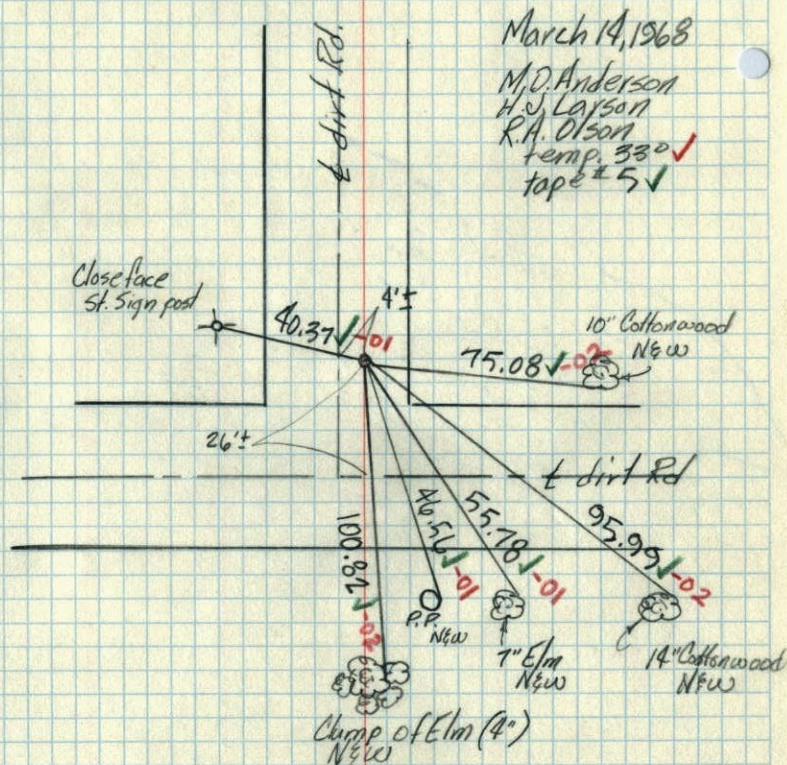 March 14, 1968
M.D. Anderson
H.J. Larson
R.A. Olson
temp. 33° ✓
tape # 5 ✓
℄ dirt Rd.
Close face
St. Sign post
40.37 ✓ -01
4'±
10" Cottonwood
N&W
75.08 ✓ -02
26'±
℄ dirt Rd
100.82 ✓ -02
46.56 ✓ -01
55.78 ✓ -01
95.99 ✓ -02
P.P.
N&W
7" Elm
N&W
14" Cottonwood
N&W
Clump of Elm (4")
N&W